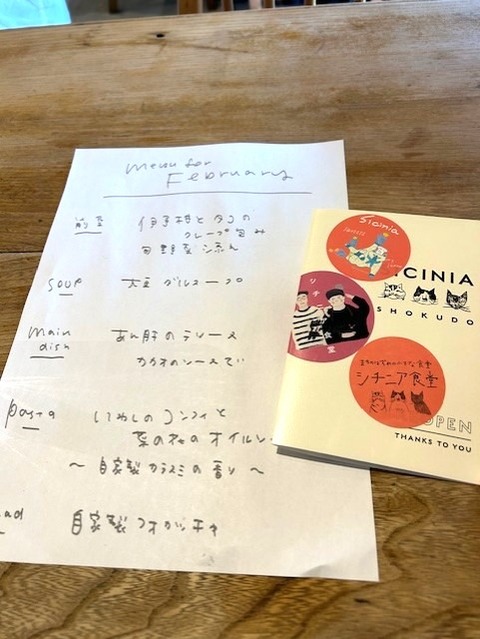 Menu for
February
前菜
伊予柑とタコの
クレープ包み
旬野菜を添え
SOUP
大豆 ブルスープ
Main
dish
あん肝のテリーヌ
カカオのソースで
pasta
いわしのコンフィと
菜の花のオイルソ
〜自家製カラスミの香り〜
ad
自家製フォカッチャ
Sicinia
CINIA
SHOKUDO
シチニア食堂
OPEN
THANKS TO YOU